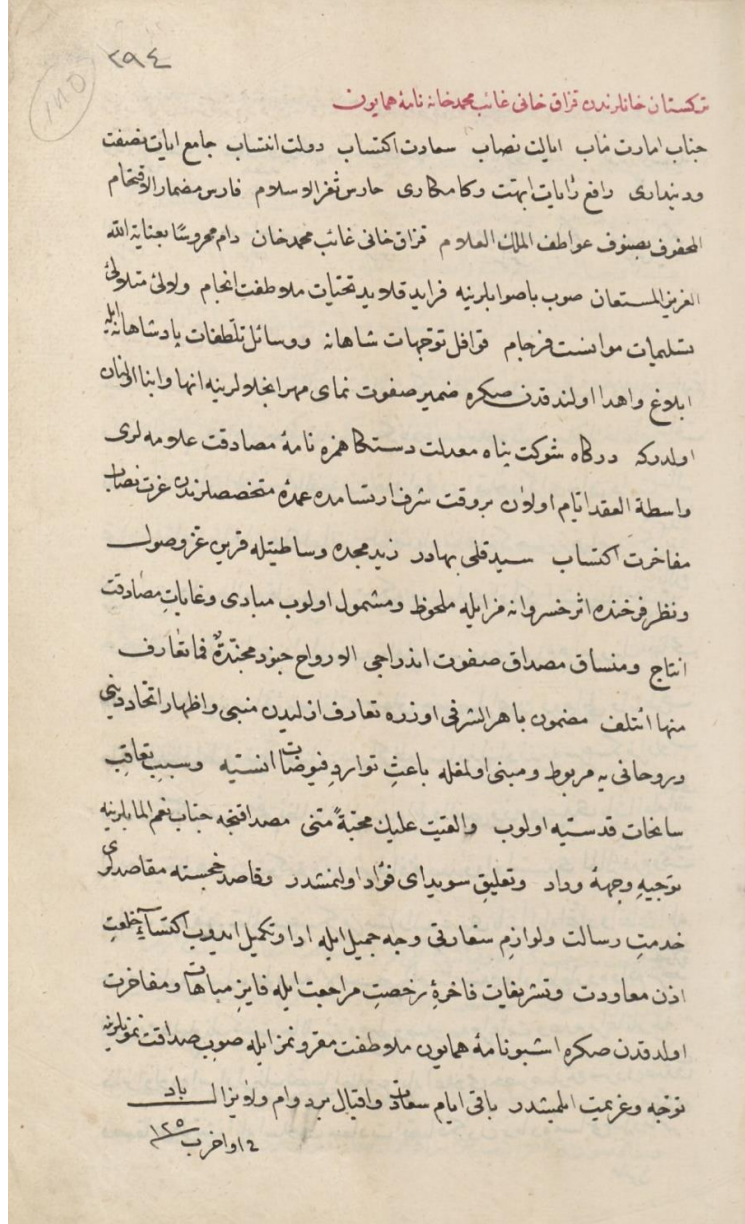 ٢٩٤
١٨٥
تركستان خانلرندن قزاق خانى غائب محمد خانه نامهٔ همايون
جناب امارت مآب ايالت نصاب سعادت اكتساب دولت انتساب جامع آيات نصفت
وديندارى رافع رايات ابهت وكامكارى حارس ثغر الاسلام فارس مضمار الاقتحام
المحفوف بصنوف عواطف الملك العلام قزاق خانى غائب محمد خان دام محروسًا بعناية الله
العزيز المستعان صوب باصوابلرينه فرايد قلايد تحيات ملاطفت انجام ولآلئ متلألئ
تسليمات موانست فرجام قوافل توجهات شاهانه ووسائل تلطفات پادشاهانه ايله
ابلاغ واهدا اولندقدنصكره ضمير صفوت نماى مهر انجلالرينه انها وابنا اولنان
اولدركه درگاه شوكت پناه معدلت دستكاهمزه نامهٔ مصادقت علامه لرى
واسطة العقد ايام اولان بروقت شرف ارتسامده عمدهٔ متخصصلرندن عزت نصاب
مفاخرت اكتساب سيد قلى بهادر زيد مجده وساطتيله قرين عز وصول
ونظر فرخنده اثر خسروانه مز ايله ملحوظ ومشمول اولوب مبادى وغايات مصادقت
انتاج ومنساق مصداق صفوت اندراجى الارواح جنود مجندة فما تعارف
منها ائتلف مضمون باهر الشرفى اوزره تعارف ازليدن منبى واظهار اتحاد دينى
وروحانى يه مربوط ومبنى اولمغله باعث توارد فيوضات انسيه وسبب تعاقب
سانحات قدسيه اولوب والقيت عليك محبةً منى مصداقنجه جناب نعم المآبلرينه
توجيه وجههٔ وداد وتعليق سويداى فؤاد اولنمشدر وقاصد خجسته مقاصدلرى
خدمت رسالت ولوازم سفارتى وجه جميل ايله ادا وتكميل ايدوب اكتساء خلعت
اذن معاودت وتشريفات فاخرهٔ رخصت مراجعت ايله فايز مباهات ومفاخرت
اولدقدن صكره اشبو نامهٔ همايون ملاطفت مقرونمز ايله صوب صداقت نمونلرينه
توجه وعزيمت ايلمشدر باقى ايام سعادت واقبال بر دوام ولا يزال باد
فى اواخر ب ١١٢٥